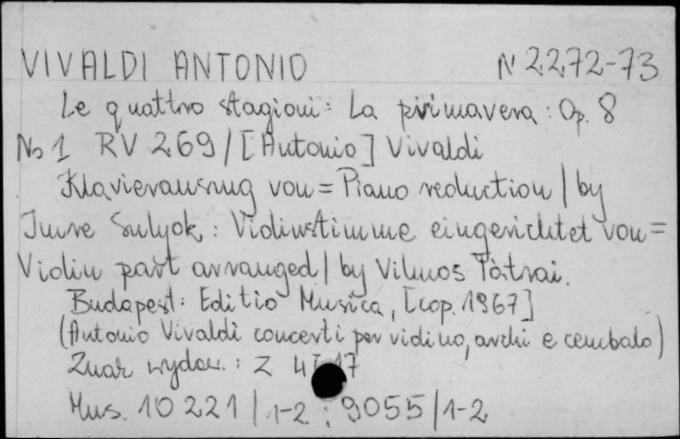 VIVALDI ANTONIO N 2272-73
Le quattro stagioni: La primavera: Op. 8
No 1 RV 269 / [Antonio] Vivaldi
Klavierauszug von = Piano reduction / by
Imre Sulyok: Violinstimme eingerichtet von =
Violin part arranged / by Vilmos Tàtrai.
Budapest: Editio Musica, [cop. 1967]
(Antonio Vivaldi concerti per violino, archi e cembalo)
Znak wydaw.: Z 17
Mus. 10221/1-2; 9055/1-2